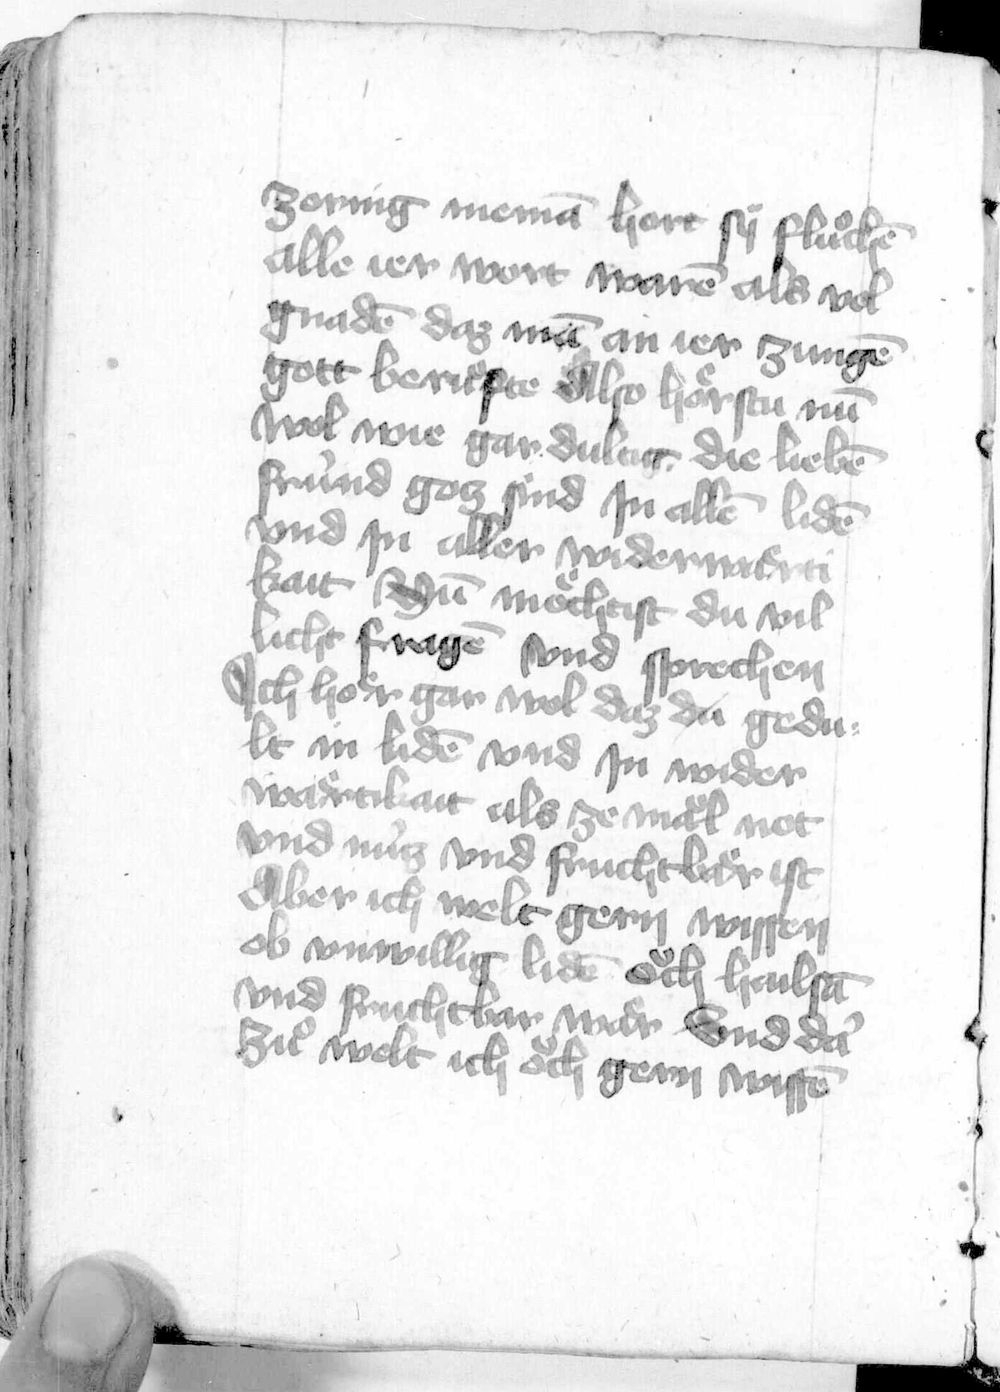 zornig niemā hort sÿ fluͦchē
alle ier wort warē als vol
gnadē daz mā an ier zungē
gott beruͤfte Also hoͤrstu nū
wol wie gar dultig die liebē
fruͤnd gotz sind Jn allē lidē
vnd Jn aller widerwaͤrti
kait Nū moͤchtist du vil
licht fragē vnd sprechen
Jch hoͤr gar wol daz da gedu-
lt in lidē vnd Jn wider
waͤrtikait als ze maͤl not
vnd nuͤtz vnd fruchtbaͤr ist
Aber ich welt gern wissen
ob vnwillig lidē oͮch hailsā
vnd fruchtbar waͤr Vnd da͛
zuͦ welt ich oͮch gern wissē